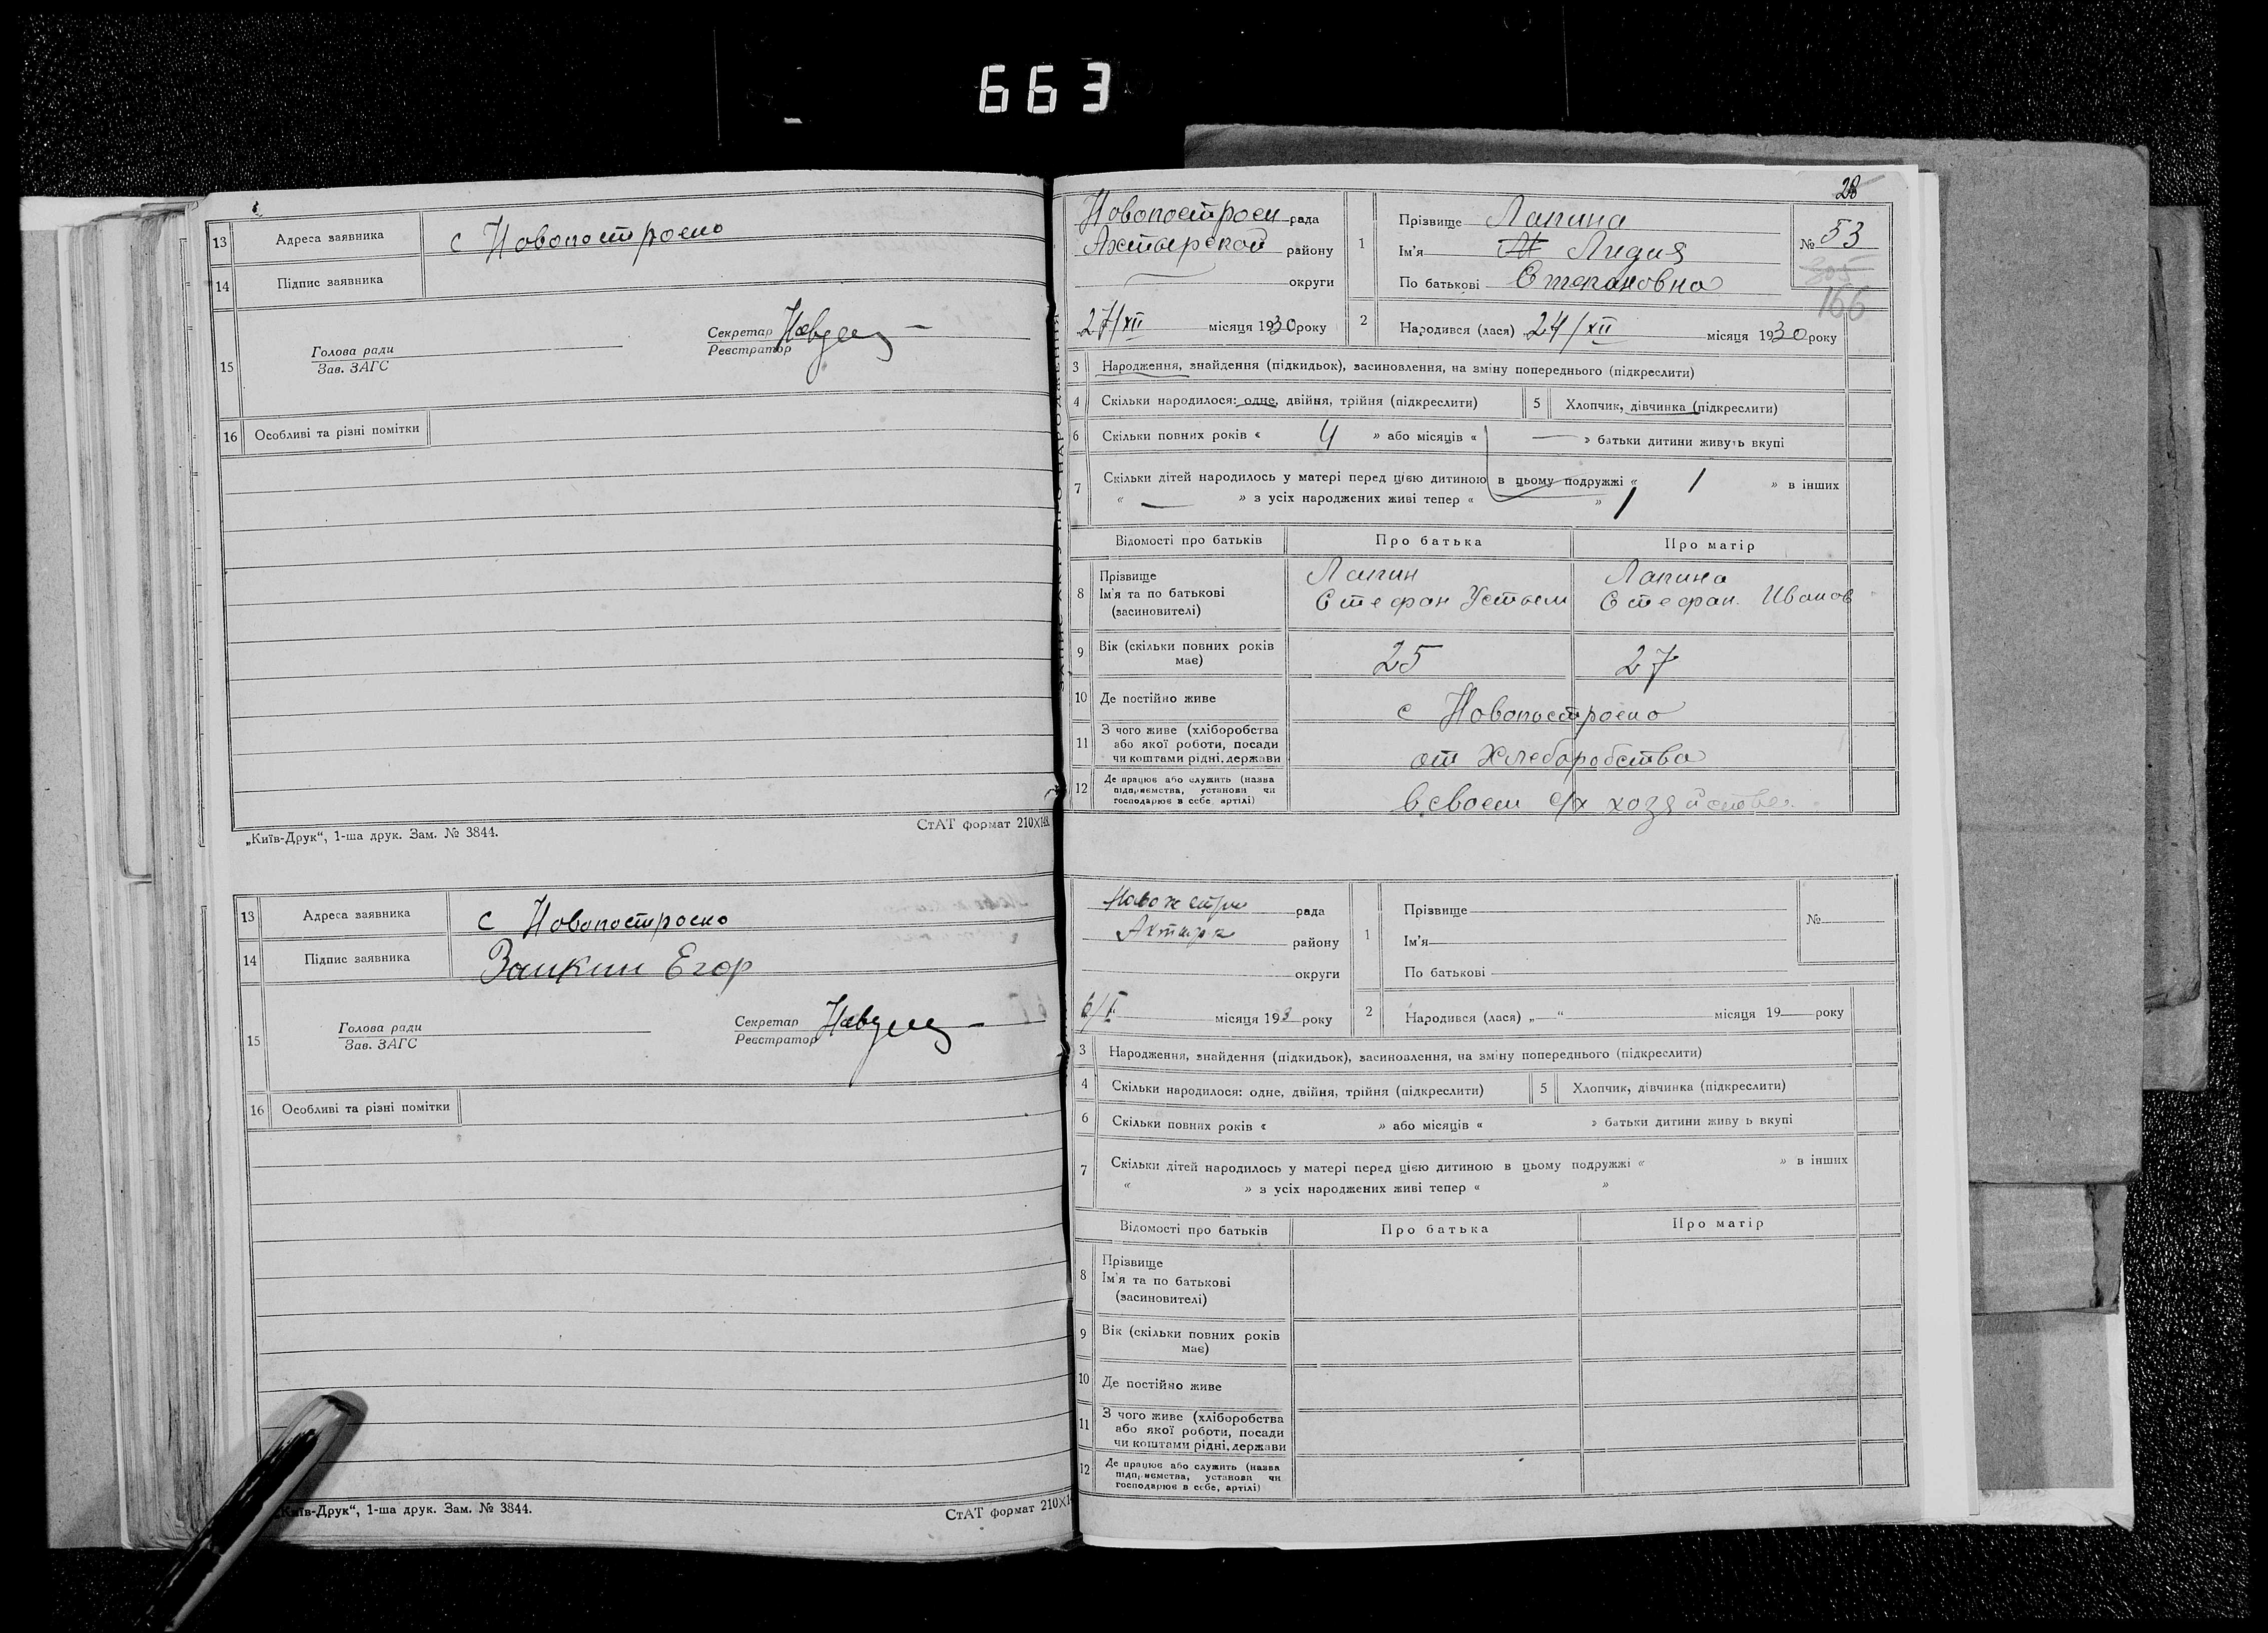 663
13 Адреса заявника с Новопостроєно
14 Підпис заявника
15 Голова ради
Зав. ЗАГС
Секретар
Реєстратор
16 Особливі та різні помітки
„Київ-Друк“, 1-ша друк. Зам. № 3844.
СтАТ формат 210X148
13 Адреса заявника с Новопостроєно
14 Підпис заявника Заикин Егор
15 Голова ради
Зав. ЗАГС
Секретар
Реєстратор
16 Особливі та різні помітки
„Київ-Друк“, 1-ша друк. Зам. № 3844.
СтАТ формат 210X1
28
Новопостроен рада
Ахтырской району
округи
27/XII місяця 1930 року
1 Прізвище Лапина
Ім'я Лидия
По батькові Степановна
№ 53
166
2 Народився (лася) 24/XII місяця 1930 року
3 Народження, знайдення (підкидьок), засиновлення, на зміну попереднього (підкреслити)
4 Скільки народилося: одне, двійня, трійня (підкреслити) 5 Хлопчик, дівчинка (підкреслити)
6 Скільки повних років « 4 » або місяців « — » батьки дитини живуть вкупі
7 Скільки дітей народилось у матері перед цією дитиною в цьому подружжі « 1 » в інших
« — » з усіх народжених живі тепер « 1 »
Відомості про батьків Про батька Про матір
8 Прізвище Лапин Лапина
Ім'я та по батькові Стефан Устим Стефан. Иванов
(засиновителі)
9 Вік (скільки повних років має) 25 27
10 Де постійно живе с Новопостроєно
11 З чого живе (хліборобства
або якої роботи, посади
чи коштами рідні, держави от Хлеборобства
12 Де працює або служить (назва
підприємства, установи чи
господарює в себе, артілі) в своем с/х хозяйстве
рада
Ахтырк району
округи
6/I місяця 193 року
1 Прізвище
Ім'я
По батькові
№
2 Народився (лася) „ “ місяця 19 року
3 Народження, знайдення (підкидьок), засиновлення, на зміну попереднього (підкреслити)
4 Скільки народилося: одне, двійня, трійня (підкреслити) 5 Хлопчик, дівчинка (підкреслити)
6 Скільки повних років « » або місяців « » батьки дитини живу ь вкупі
7 Скільки дітей народилось у матері перед цією дитиною в цьому подружжі « » в інших
« » з усіх народжених живі тепер « »
Відомості про батьків Про батька Про матір
8 Прізвище
Ім'я та по батькові
(засиновителі)
9 Вік (скільки повних років
має)
10 Де постійно живе
11 З чого живе (хліборобства
або якої роботи, посади
чи коштами рідні, держави
12 Де працює або служить (назва
підприємства, установи чи
господарює в себе, артілі)